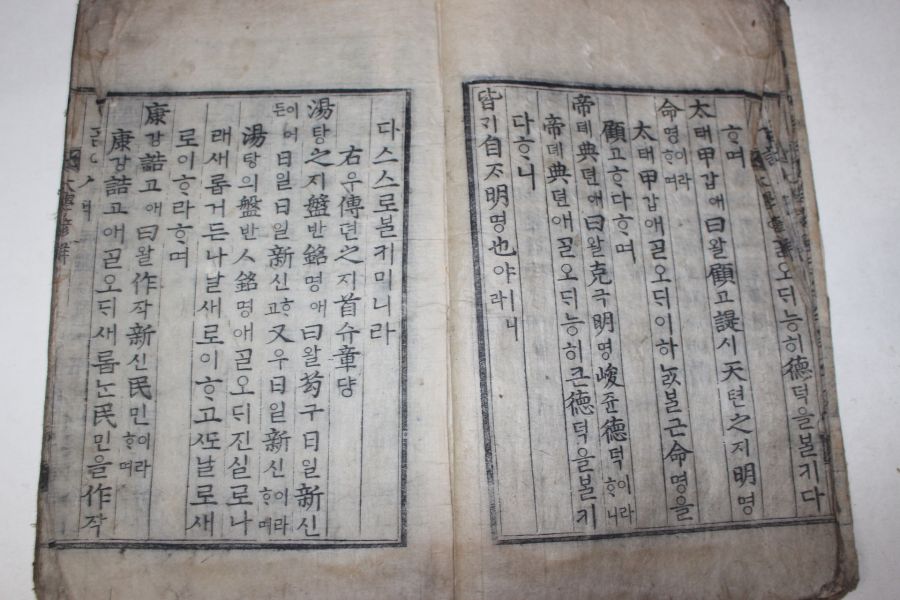 오ᄃᆡ능히德덕을ᄇᆞᆯ기다
ᄒᆞ며
太태甲갑애曰왈顧고諟시天텬之지明명
命명ᄒᆞ이라ᄒᆞ며
太태甲갑애ᄀᆞᆯ오ᄃᆡ이하ᄂᆞᆳᄇᆞᆯ근命명을
顧고ᄒᆞ다ᄒᆞ며
帝뎨典뎐애曰왈克극明명峻쥰德덕이라ᄒᆞ니
帝뎨典뎐애ᄀᆞᆯ오ᄃᆡ능히큰德덕을ᄇᆞᆯ기
다ᄒᆞ니
皆ᄀᆡ自ᄌᆞ明명也야ㅣ니라
다스스로ᄇᆞᆯ키미니라
右우傳뎐之지首슈章쟝
湯탕之지盤반銘명애曰왈苟구日일新신
이어든日일日일新신ᄒᆞ고又우日일新신이라ᄒᆞ며
湯탕의盤반ㅅ銘명애ᄀᆞᆯ오ᄃᆡ진실로나
래새롭거든나날새로이ᄒᆞ고ᄯᅩ날로새
로이ᄒᆞ라ᄒᆞ며
康강誥고애曰왈作작新신民민이라ᄒᆞ며
康강誥고애ᄀᆞᆯ오ᄃᆡ새롭ᄂᆞᆫ民민을作작